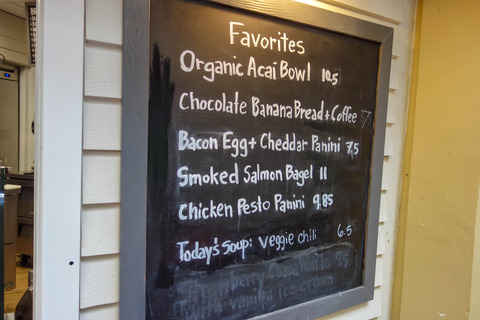 Favorites
Organic Acai Bowl 10.5
Chocolate Banana Bread + Coffee 7
Bacon Egg + Cheddar Panini 7.5
Smoked Salmon Bagel 11
Chicken Pesto Panini 9.85
Today's Soup: veggie chili 6.5
with vanilla ice cream